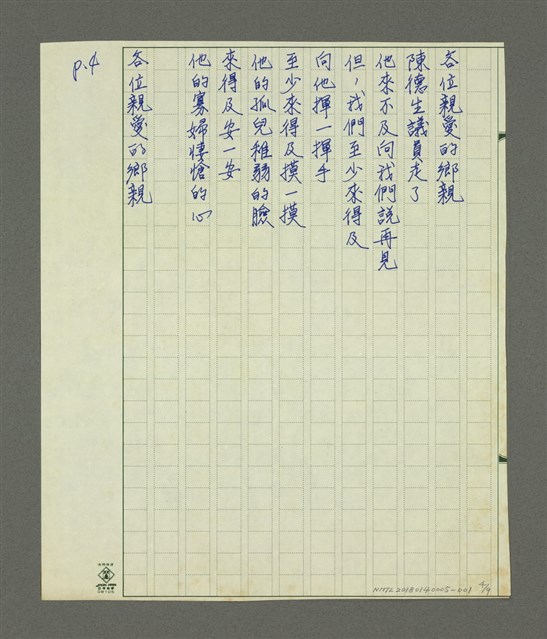 各位親愛的鄉親
陳德生議員走了
他來不及向我們說再見
但，我們至少來得及
向他揮一揮手
至少來得及摸一摸
他的孤兒稚弱的臉
來得及安一安
他的寡婦悽愴的心
各位親愛的鄉親
p.4
NMTL20180140005-001 4/19